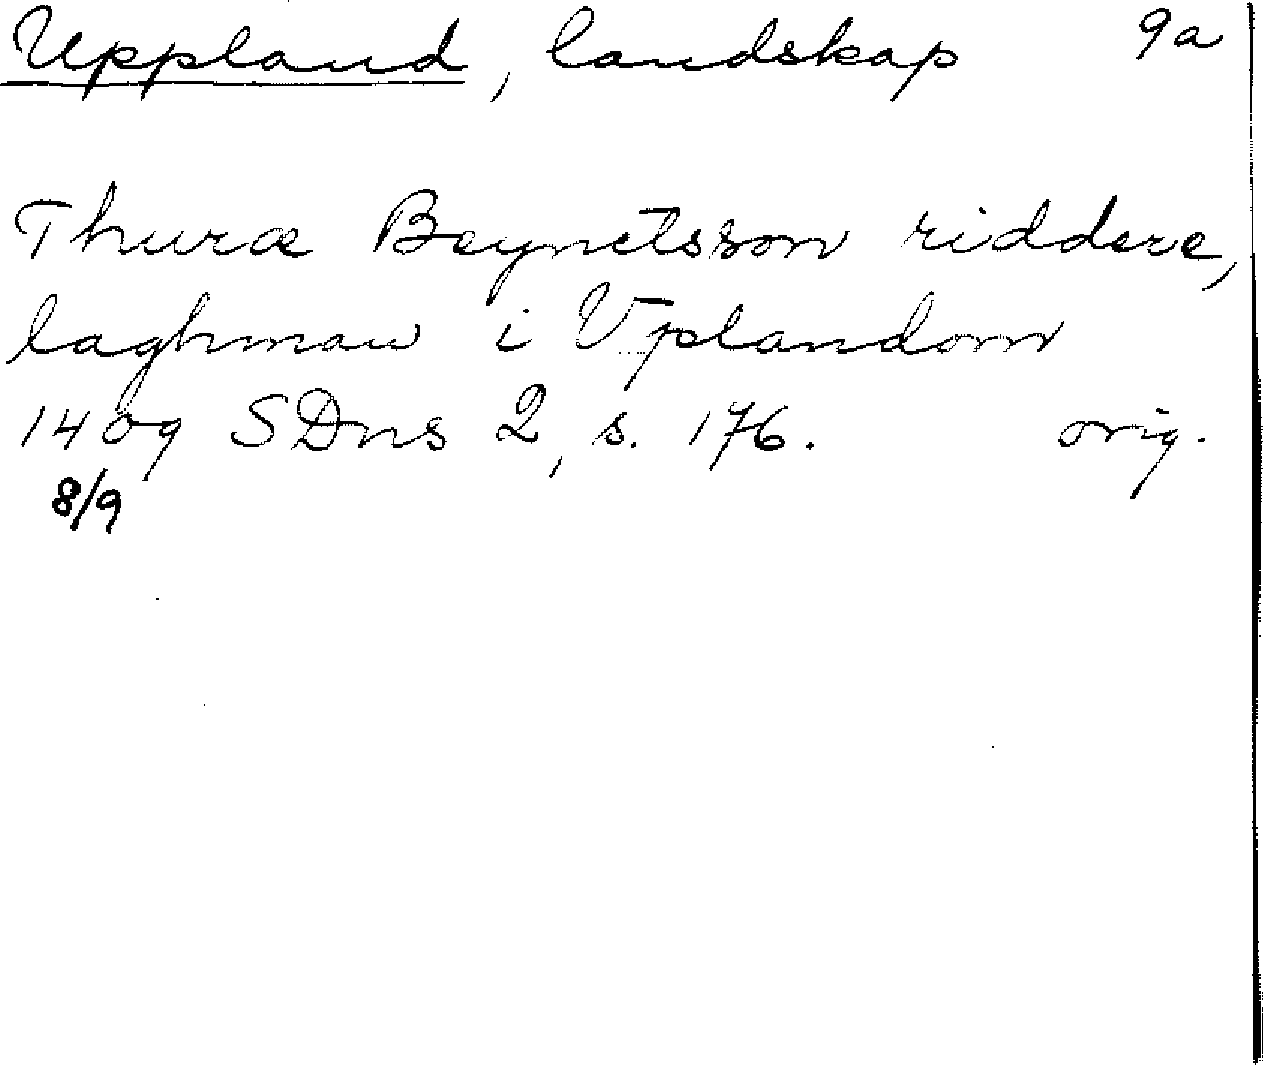 Uppland, landskap 9a
Thuræ Beynctsson riddere,
laghman i Vplandom
1409 SDns 2, s. 176. orig.
8/9